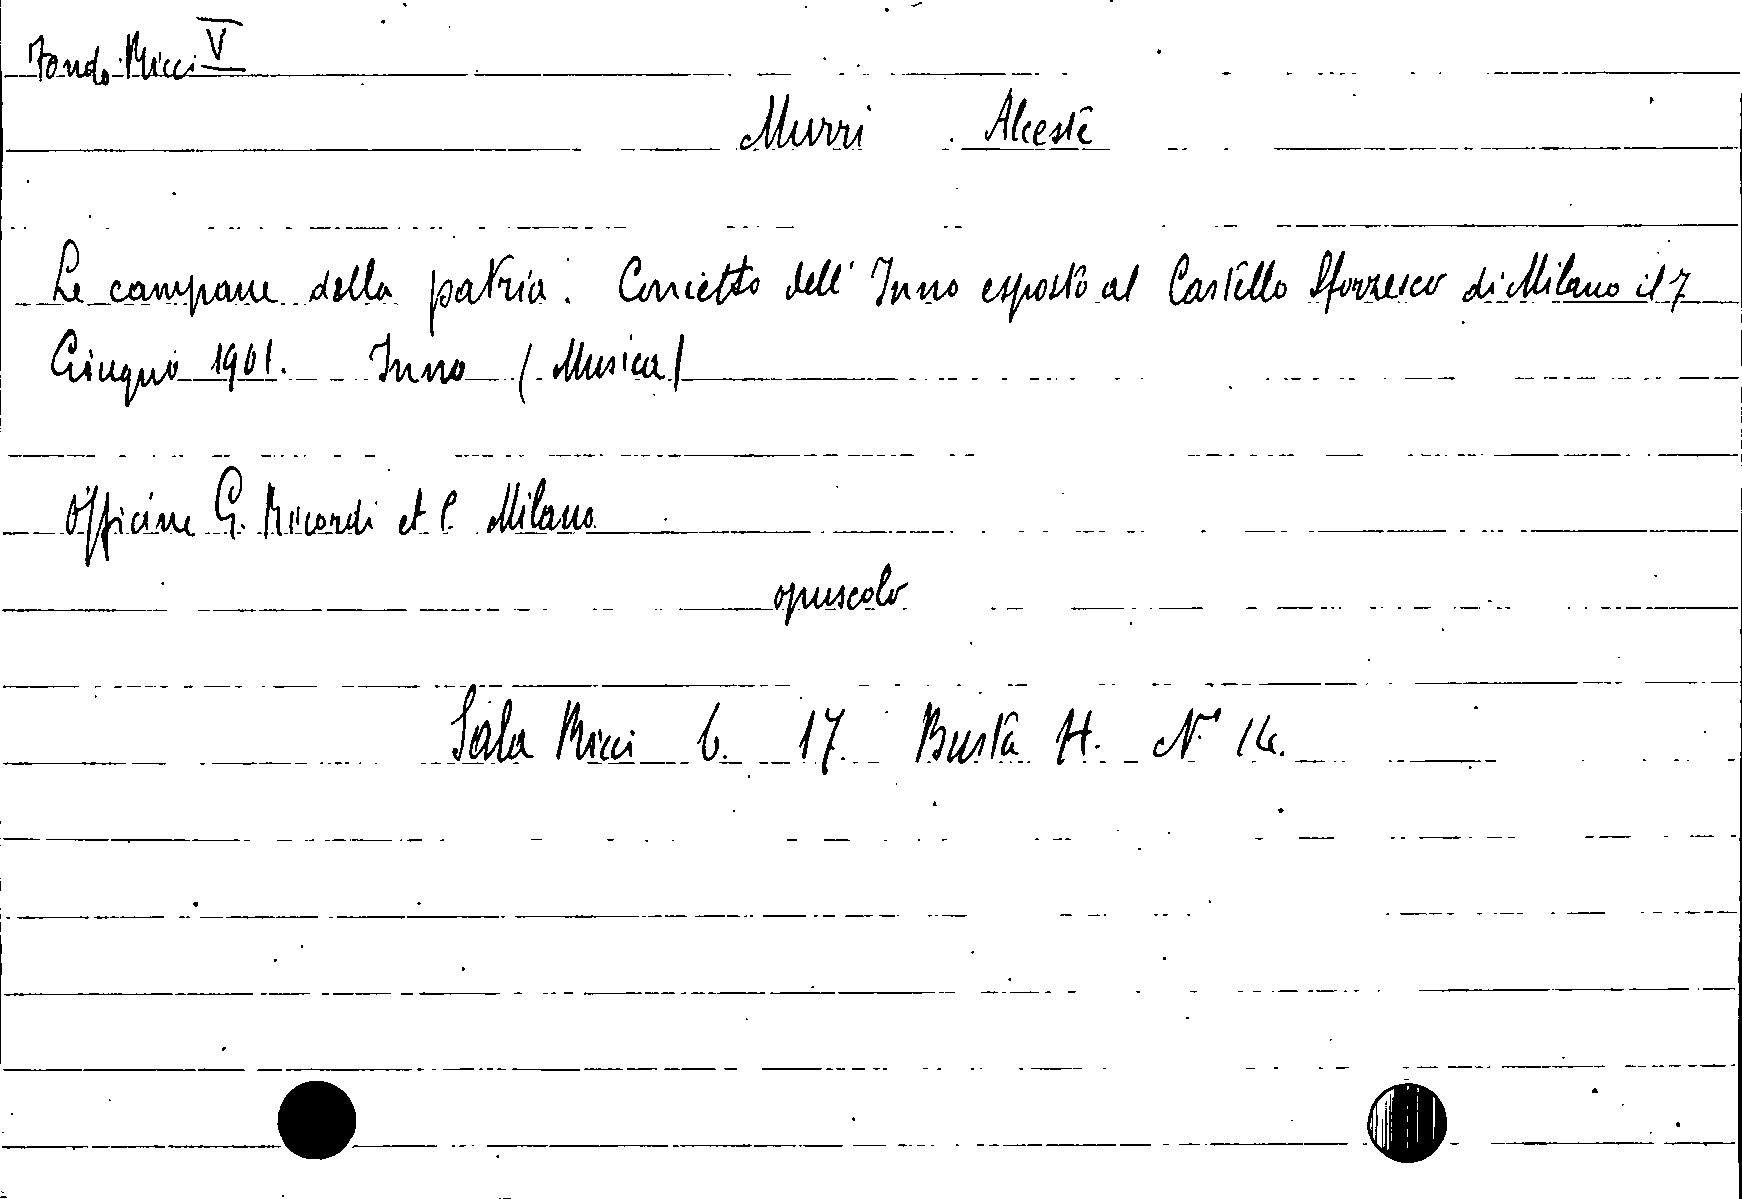 Fondo Ricci V
Murri Alceste
Le campane della patria. Concetto dell' Inno esposto al Castello Sforzesco di Milano il 7
Giugno 1901. Inno (Musica)
Officine G. Ricordi et C. Milano
opuscolo
Sala Ricci b. 17. Busta H. N°